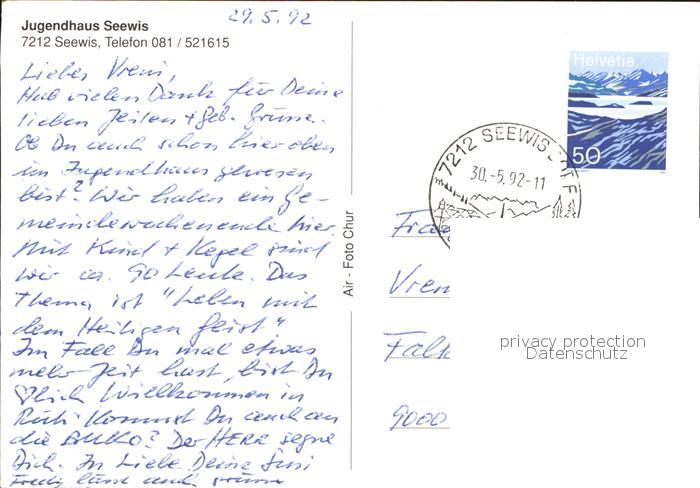 29.5.92
Jugendhaus Seewis
7212 Seewis, Telefon 081 / 521615
Liebes Vreni,
Hab vielen Dank für Deine
lieben Zeilen + Geb. Grüsse.
Ob Du auch schon hier oben
im Jugendhaus gewesen
bist? Wir haben ein Ge-
meindewochenende hier.
Mit Kind + Kegel sind
wir ca. 90 Leute. Das
Thema ist "Leben mit
dem Heiligen Geist"
Im Fall Du mal etwas
mehr Zeit hast, bist Du
♡lich Willkommen in
Rüti. Kommst Du auch an
die ? Der HERR segne
Dich. In Liebe Deine Susi
lässt auch grüssen
Air - Foto Chur
Helvetia
50
7212 SEEWIS
30.-5.92-11
Frau
Vren
Falk
9000
privacy protection
Datenschutz